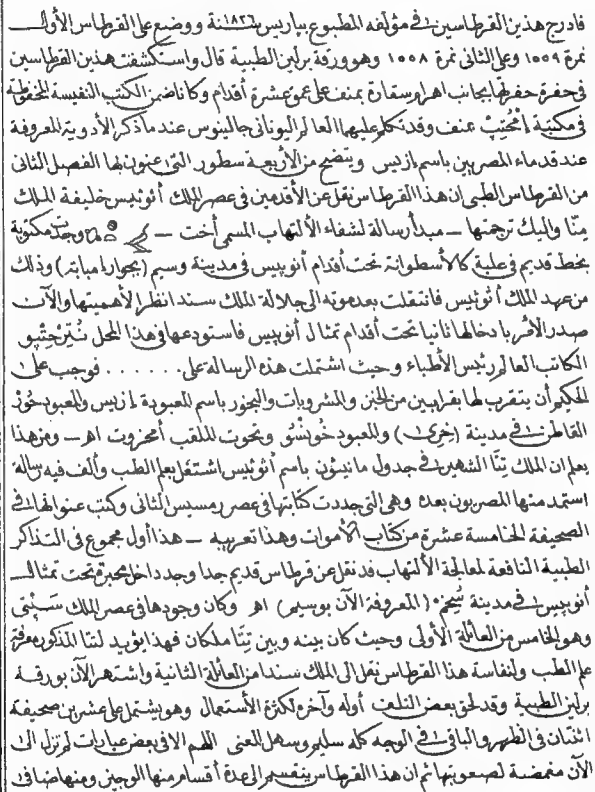 فادرج هذين القرطاسين فى مؤلفه المطبوع بباريس سنة ١٨٣٦ ووضع على القرطاس الأول
نمرة ١٥٥٩ وعلى الثانى نمرة ١٥٥٨ وهو ورقة برلين الطبية قال واستكشفت هذين القرطاسين
فى حفرة حفرتها بجانب اهرام سقارة بمنف على عمق عشرة أقدام وكانا ضمن الكتب النفيسة المحفوظة
فى مكتبة إمْحُتِبْ بمنف وقد تكلم عليهما العالم اليونانى جالينوس عند ما ذكر الأدوية المعروفة
عند قدماء المصريين باسم إزيس ويتضح من الأربعة سطور التى عنون بها الفصل الثانى
من القرطاس الطبى ان هذا القرطاس نقل عن الأقدمين فى عصر الملك أثوثيس خليفة الملك
مِنّا واليك ترجمتها ــ مبدأ رسالة لشفاء الألتهاب المسمى أخت ــ وجدت مكتوبة
بخط قديم فى علبة كالأسطوانة تحت أقدام أنوبيس فى مدينة وسيم (بجوار امبابة) وذلك
من عهد الملك أثوثيس فانتقلت بعد موته الى جلالة الملك سندا نظرا لأهميتها والآن
صدر الأمر بادخالها ثانيا تحت أقدام تمثال أنوبيس فاستودعها فى هذا المحل
الكاتب العالم رئيس الأطباء وحيث اشتملت هذه الرسالة على . . . . . . فوجب على
الحكيم أن يتقرب لها بقرابين من الخبز والمشروبات والبخور باسم المعبودة إزيس والمعبود خُوْرْ
القاطن فى مدينة وللمعبود خُونْسُو وتحوت الملقب أمخروت اهـ ــ ومن هذا
يعلم ان الملك تِتّا الشهير فى جدول مانيثون باسم أثوثيس اشتغل بعلم الطب وألف فيه رسالة
استمد منها المصريون بعده وهى التى جددت كتابتها فى عصر رمسيس الثانى وكتب عنوانها فى
الصحيفة الخامسة عشرة من كتاب الأموات وهذا تعريبه ــ هذا أول مجموع فى التذاكر
الطبية النافعة لمعالجة الألتهاب قد نقل عن قرطاس قديم جدا وجد داخل محبرة تحت تمثال
أنوبيس فى مدينة سُخِمْ (المعروفة الآن بوسيم) اهـ وكان وجودها فى عصر الملك سَبْتِى
وهو الخامس من العائلة الأولى وحيث كان بينه وبين تِتّا ملكان فهذا يؤيد لتتا المذكور معرفة
علم الطب ولنفاسة هذا القرطاس نقل الى الملك سندا من العائلة الثانية واشتهر الآن بورقة
برلين الطبية وقد لحق بعض التلف أوله وآخره لكثرة الأستعمال وهو يشتمل على عشرين صحيفة
اثنتان فى الظهر والباقى فى الوجه كله سليم وسهل المعنى اللهم الا فى بعض عبارات لم تزل الى
الآن منغمضة لصعوبتها ثم ان هذا القرطاس ينقسم الى عدة أقسام منها الوجيز ومنها ضافى